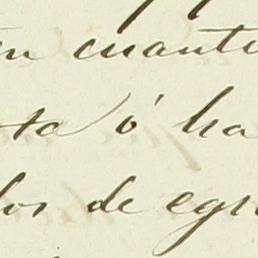 en cuanto
ta ó ha
los de egr